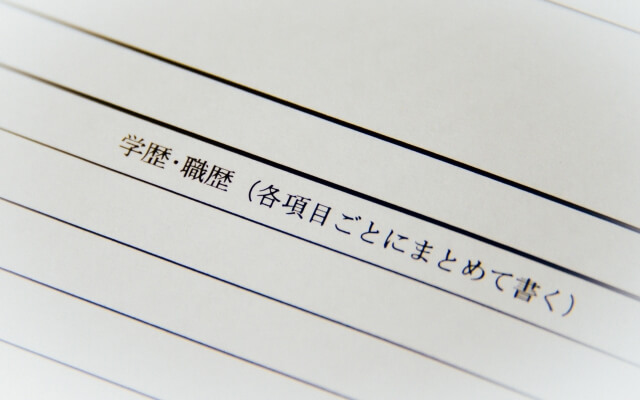 学歴・職歴（各項目ごとにまとめて書く）